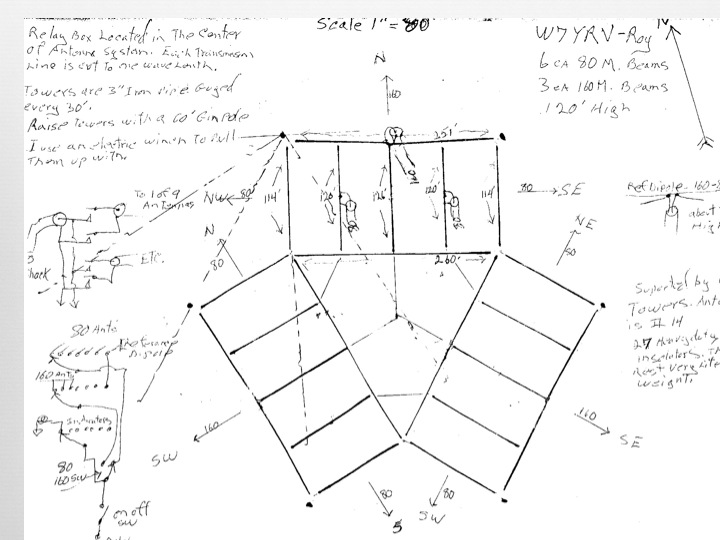 Scale 1" = 80'
Relay Box Located in The Center
of Antenna System. Each Transmission
Line is cut to one wave Lenth.
Towers are 3" Iron Pipe Guyed
every 30'.
Raise Towers with a 60' Gin Pole
I use an electric winch to Pull
Them up with.
W7YRV-Roy
6 ea 80 M. Beams
3 ea 160 M. Beams
120' High
N
N
160
251'
160
114'
126'
126'
120'
114'
80
80
NW
80
80
SE
N
80
NE
80
260'
To 1 of 9
Antennas
Etc.
Ref Dipole 160-8
about
High
Suported by
Towers. Ant
is # 14
27
insolators. Th
Very Lite
weight.
80 Ants
160 ants
80
160 SW
on off
SW
160
SW
160
SE
80
S
80
SW